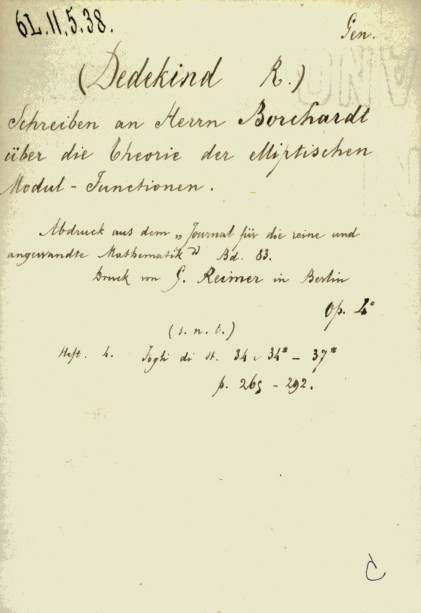 6L.11.5.38.
Gen.
(Dedekind R.)
Schreiben an Herrn Borchardt
über die Theorie der elliptischen
Modul-Functionen.
Abdruck aus dem „Journal für die reine und
angewandte Mathematik" Bd. 83.
Druck von G. Reimer in Berlin
Op. 4°
(s. n. t.)
Heft. 4. Fogli di st. 34 34* - 37*
p. 265 - 292.